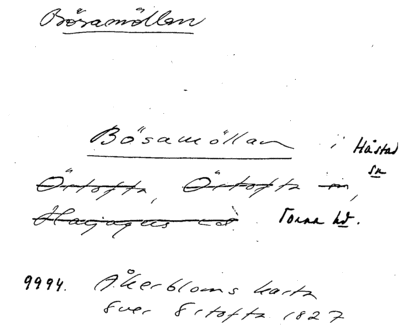 Bösamöllan
Bösamöllan i Håstad
sn
Örtofta, Örtofta sn,
Harjagers hd. Torna hd.
9994. Åkerbloms karta
över Örtofta 1827